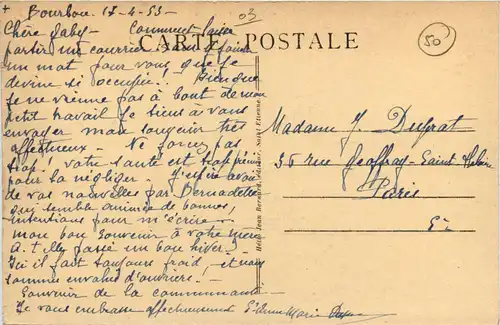 + Bourbon. 17-4-53-
03
50
CARTE POSTALE
Chère Gaby- Comment laisser
partir un courrier sans y joindre
un mot pour vous, que je
devine si occupée. Bien que
je ne vienne pas à bout de mon
petit travail je tiens à vous
envoyer mon souvenir très
affectueux - Ne forcez pas
trop. Votre santé est trop
pour la négliger. J'espère avoir
de vos nouvelles par Bernadette
qui semble animée de bonnes
intentions pour m'écrire -
mon bon souvenir à votre mère
A-t-elle passé un bon hiver?
Ici il fait toujours froid, et nous
sommes envahis d'ouvriers -
Souvenir de la communauté
Je vous embrasse affectueusement Sr Anne Marie
Hélio Jean Bernard, éditeur, Saint-Etienne.
Madame J. Duprat
36 rue Geoffroy-Saint Hilaire
Paris